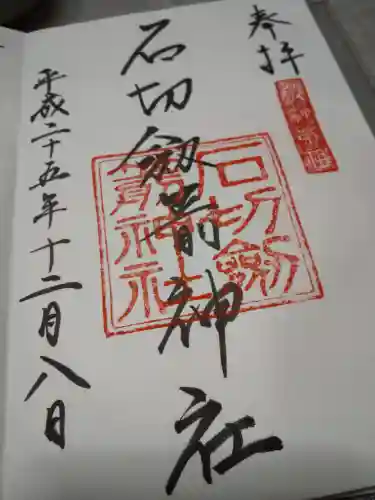 奉拝
石切劔箭神社
石切劔
箭神社
平成二十五年十二月八日